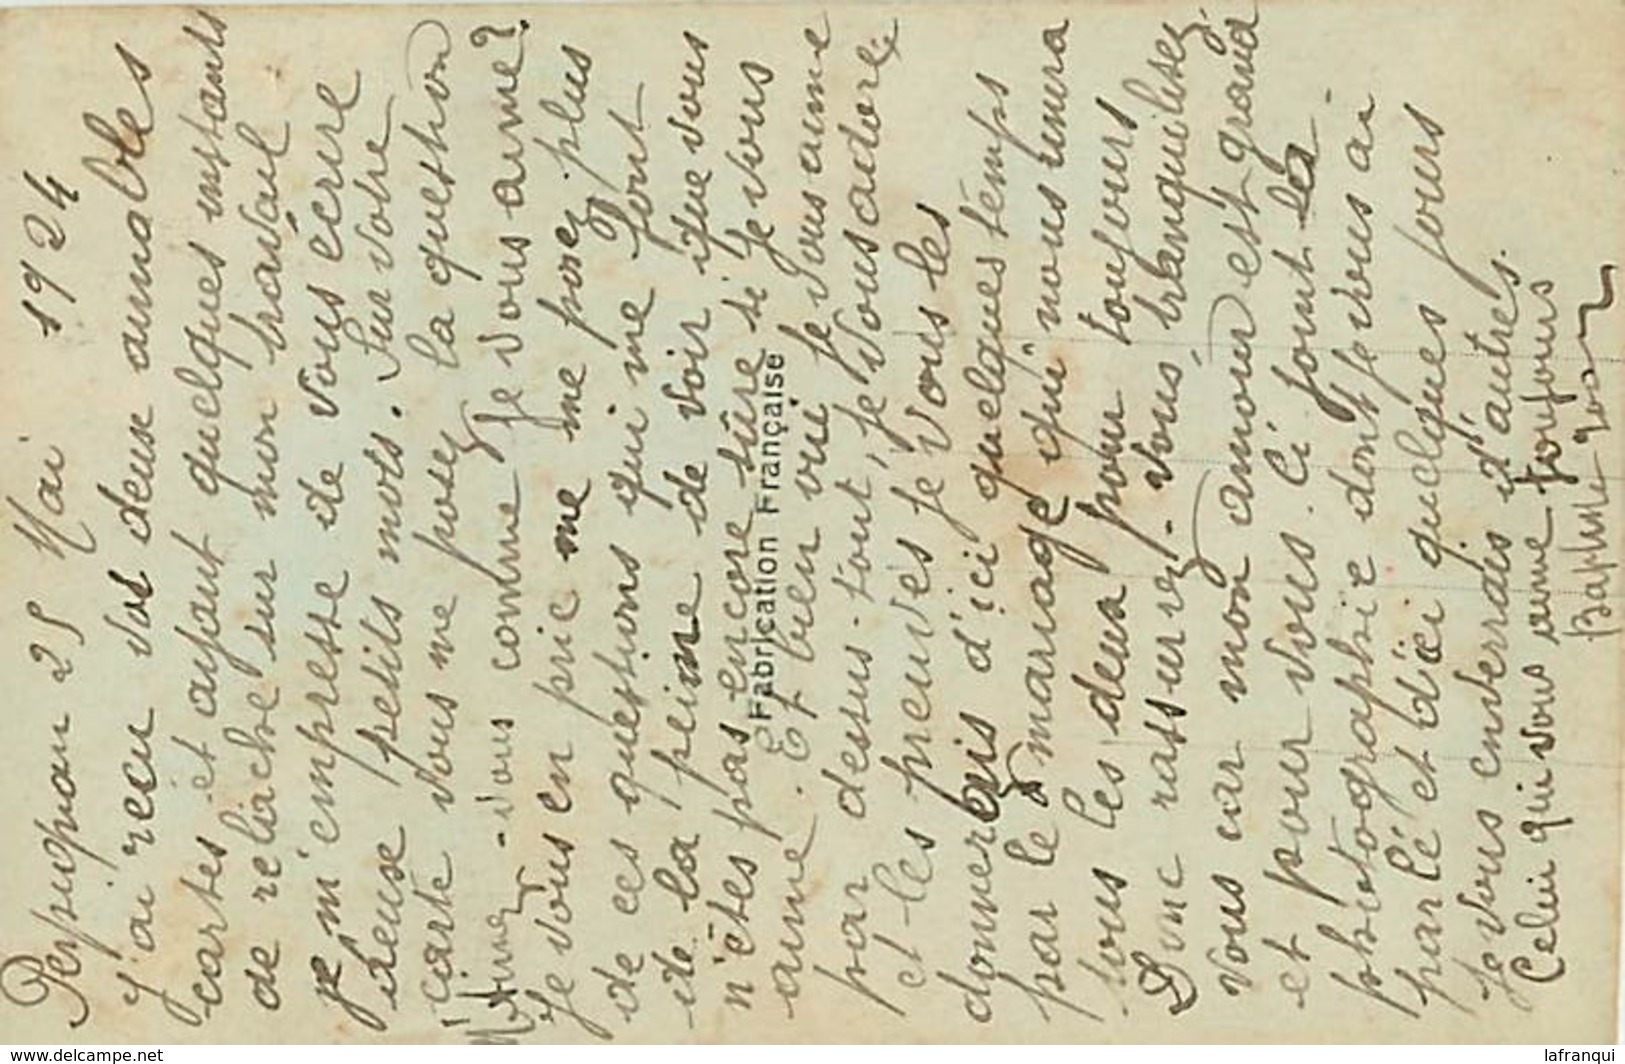 Perpignan 25 Mai 1924
J'ai recu vos deux aimables
cartes et ayant quelques instants
de relâche sur mon travail
je m'empresse de vous ecrire
ideuse petits mots. Sur votre
carte vous me posez la question
M'aimez-vous comme je vous aime?
Je vous en prie ne me posez plus
de ces questions qui me font
de la peine de voir que vous
n'êtes pas encore sûre si je vous
aime. Et bien oui je vous aime
par dessus-tout, je vous adore
et les preuves je vous les
donnerais d'ici quelques temps
par le mariage qui nous unira
tous les deux pour toujours
Donc rassurez-vous tranquilisez
vous car mon amour est grand
et pour vous. Ci joint la
photographie dont je vous ai
parlé et d'ici quelques jours
je vous enverrais d'autres.
Celui qui vous aime toujours
Baptiste
Fabrication Française
www.delcampe.net
lafranqui